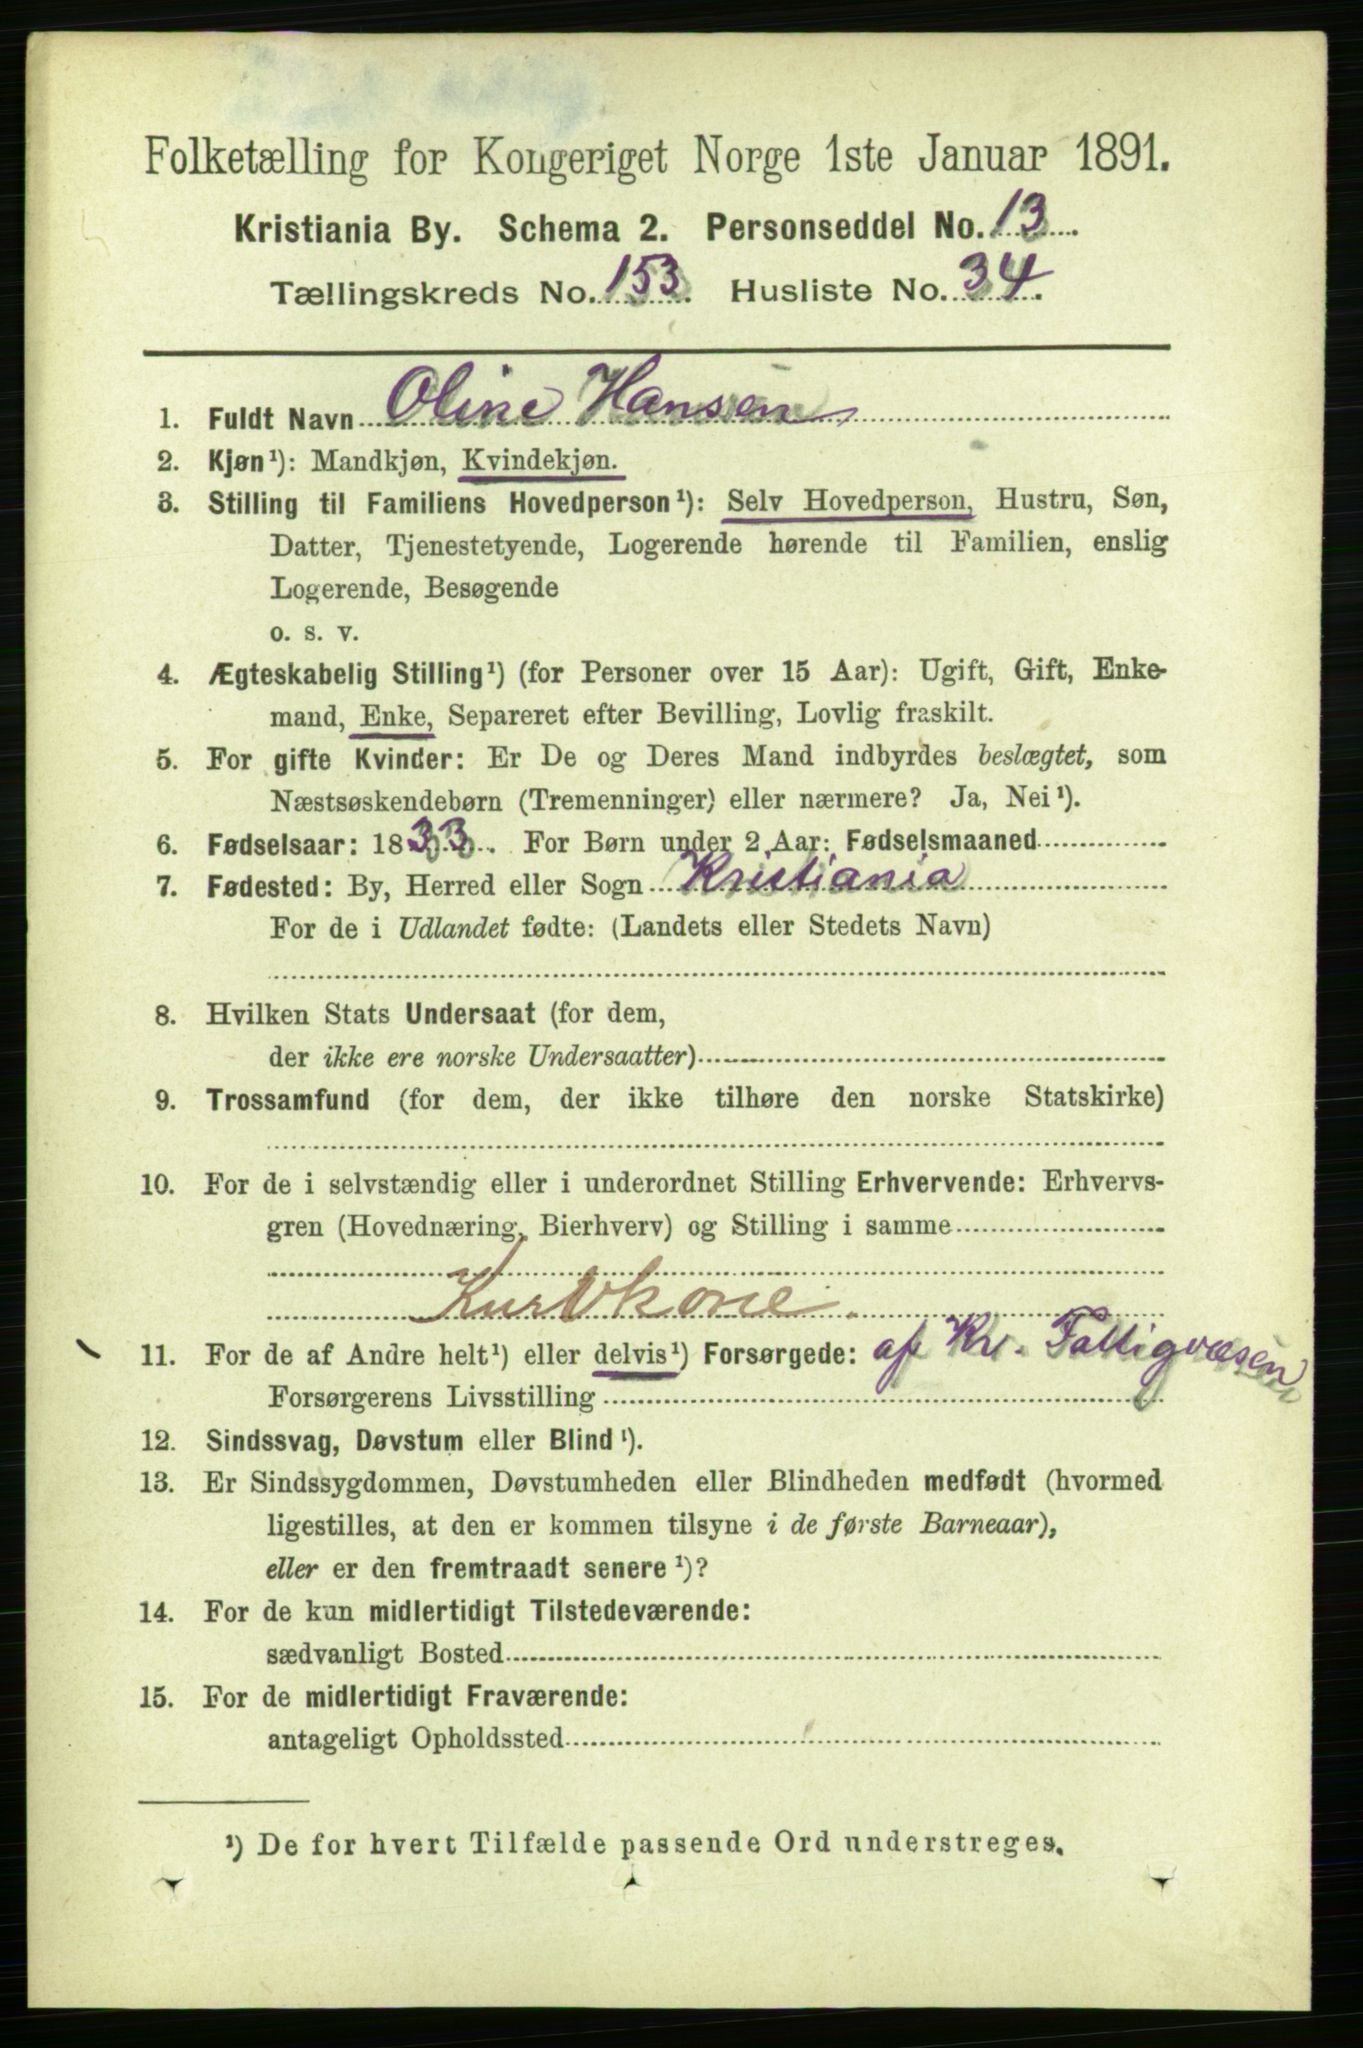 Folketælling for Kongeriget Norge 1ste Januar 1891.
Kristiania By. Schema 2. Personseddel No. 13.
Tællingskreds No. 153. Husliste No. 34.
1. Fuldt Navn Oline Hansen
2. Kjøn¹): Mandkjøn, Kvindekjøn.
3. Stilling til Familiens Hovedperson¹): Selv Hovedperson, Hustru, Søn,
Datter, Tjenestetyende, Logerende hørende til Familien, enslig
Logerende, Besøgende
o. s. v.
4. Ægteskabelig Stilling¹) (for Personer over 15 Aar): Ugift, Gift, Enke-
mand, Enke, Separeret efter Bevilling, Lovlig fraskilt.
5. For gifte Kvinder: Er De og Deres Mand indbyrdes beslægtet, som
Næstsøskendebørn (Tremenninger) eller nærmere? Ja, Nei¹).
6. Fødselsaar: 1833. For Børn under 2 Aar: Fødselsmaaned
7. Fødested: By, Herred eller Sogn Kristiania
For de i Udlandet fødte: (Landets eller Stedets Navn)
8. Hvilken Stats Undersaat (for dem,
der ikke ere norske Undersaatter)
9. Trossamfund (for dem, der ikke tilhøre den norske Statskirke)
10. For de i selvstændig eller i underordnet Stilling Erhvervende: Erhvervs-
gren (Hovednæring, Bierhverv) og Stilling i samme
Kurvkone.
11. For de af Andre helt¹) eller delvis¹) Forsørgede: af Kr. Fattigvæsen
Forsørgerens Livsstilling
12. Sindssvag, Døvstum eller Blind¹).
13. Er Sindssygdommen, Døvstumheden eller Blindheden medfødt (hvormed
ligestilles, at den er kommen tilsyne i de første Barneaar),
eller er den fremtraadt senere¹)?
14. For de kun midlertidigt Tilstedeværende:
sædvanligt Bosted
15. For de midlertidigt Fraværende:
antageligt Opholdssted
¹) De for hvert Tilfælde passende Ord understreges.